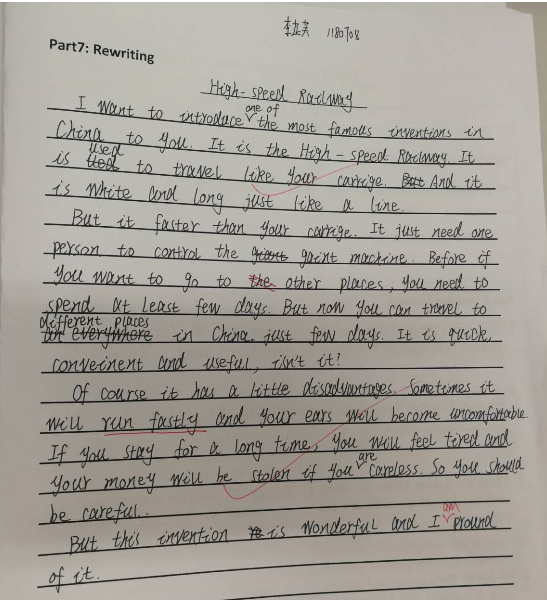 李芷芙 1180708
Part7: Rewriting
High-speed Railway
I want to introduce one of the most famous inventions in
China to you. It is the High-speed Railway. It
is used to travel like your carrige. And it
is white and long just like a line.
But it faster than your carrige. It just need one
person to control the gaint machine. Before if
you want to go to the other places, you need to
spend at least few days. But now you can travel to
different places in China, just few days. It is quick,
conveinent and useful, isn't it?
Of course it has a little disadvantages. Sometimes it
will run fastly and your ears will become uncomfortable.
If you stay for a long time, you will feel tired and
your money will be stolen if you are careless. So you should
be careful.
But this invention is wonderful and I am pround
of it.